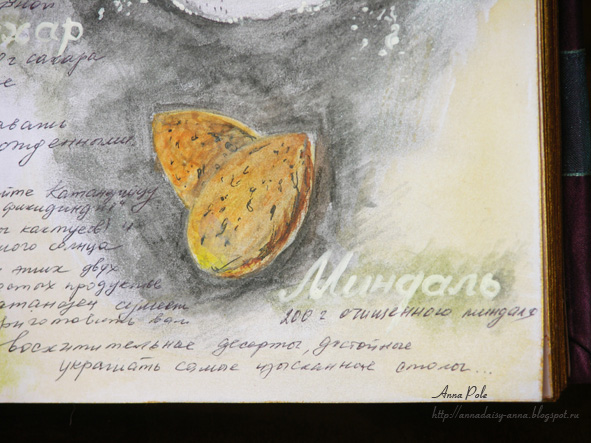 хар
г сахара
рожденными,
йте Катандзийцу
фикидинди"
ы кактусы!
ного солнца
этих двух
остых продукты
атанзец сумеет
приготовить вам
Миндаль
200 г очищенного миндаля
восхитительные десерты, достойные
украшать самые изысканные столы...
Anna Pole
http://annadaisy-anna.blogspot.ru